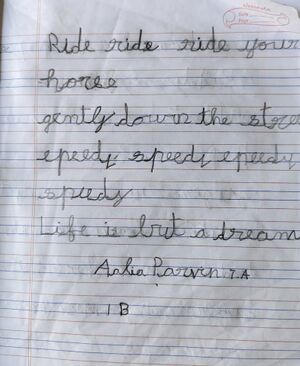 Ride ride ride your
horse
gently down the store
speedy speedy speedy
speedy
Life is but a dream
Aalia Parvin 7A
1B